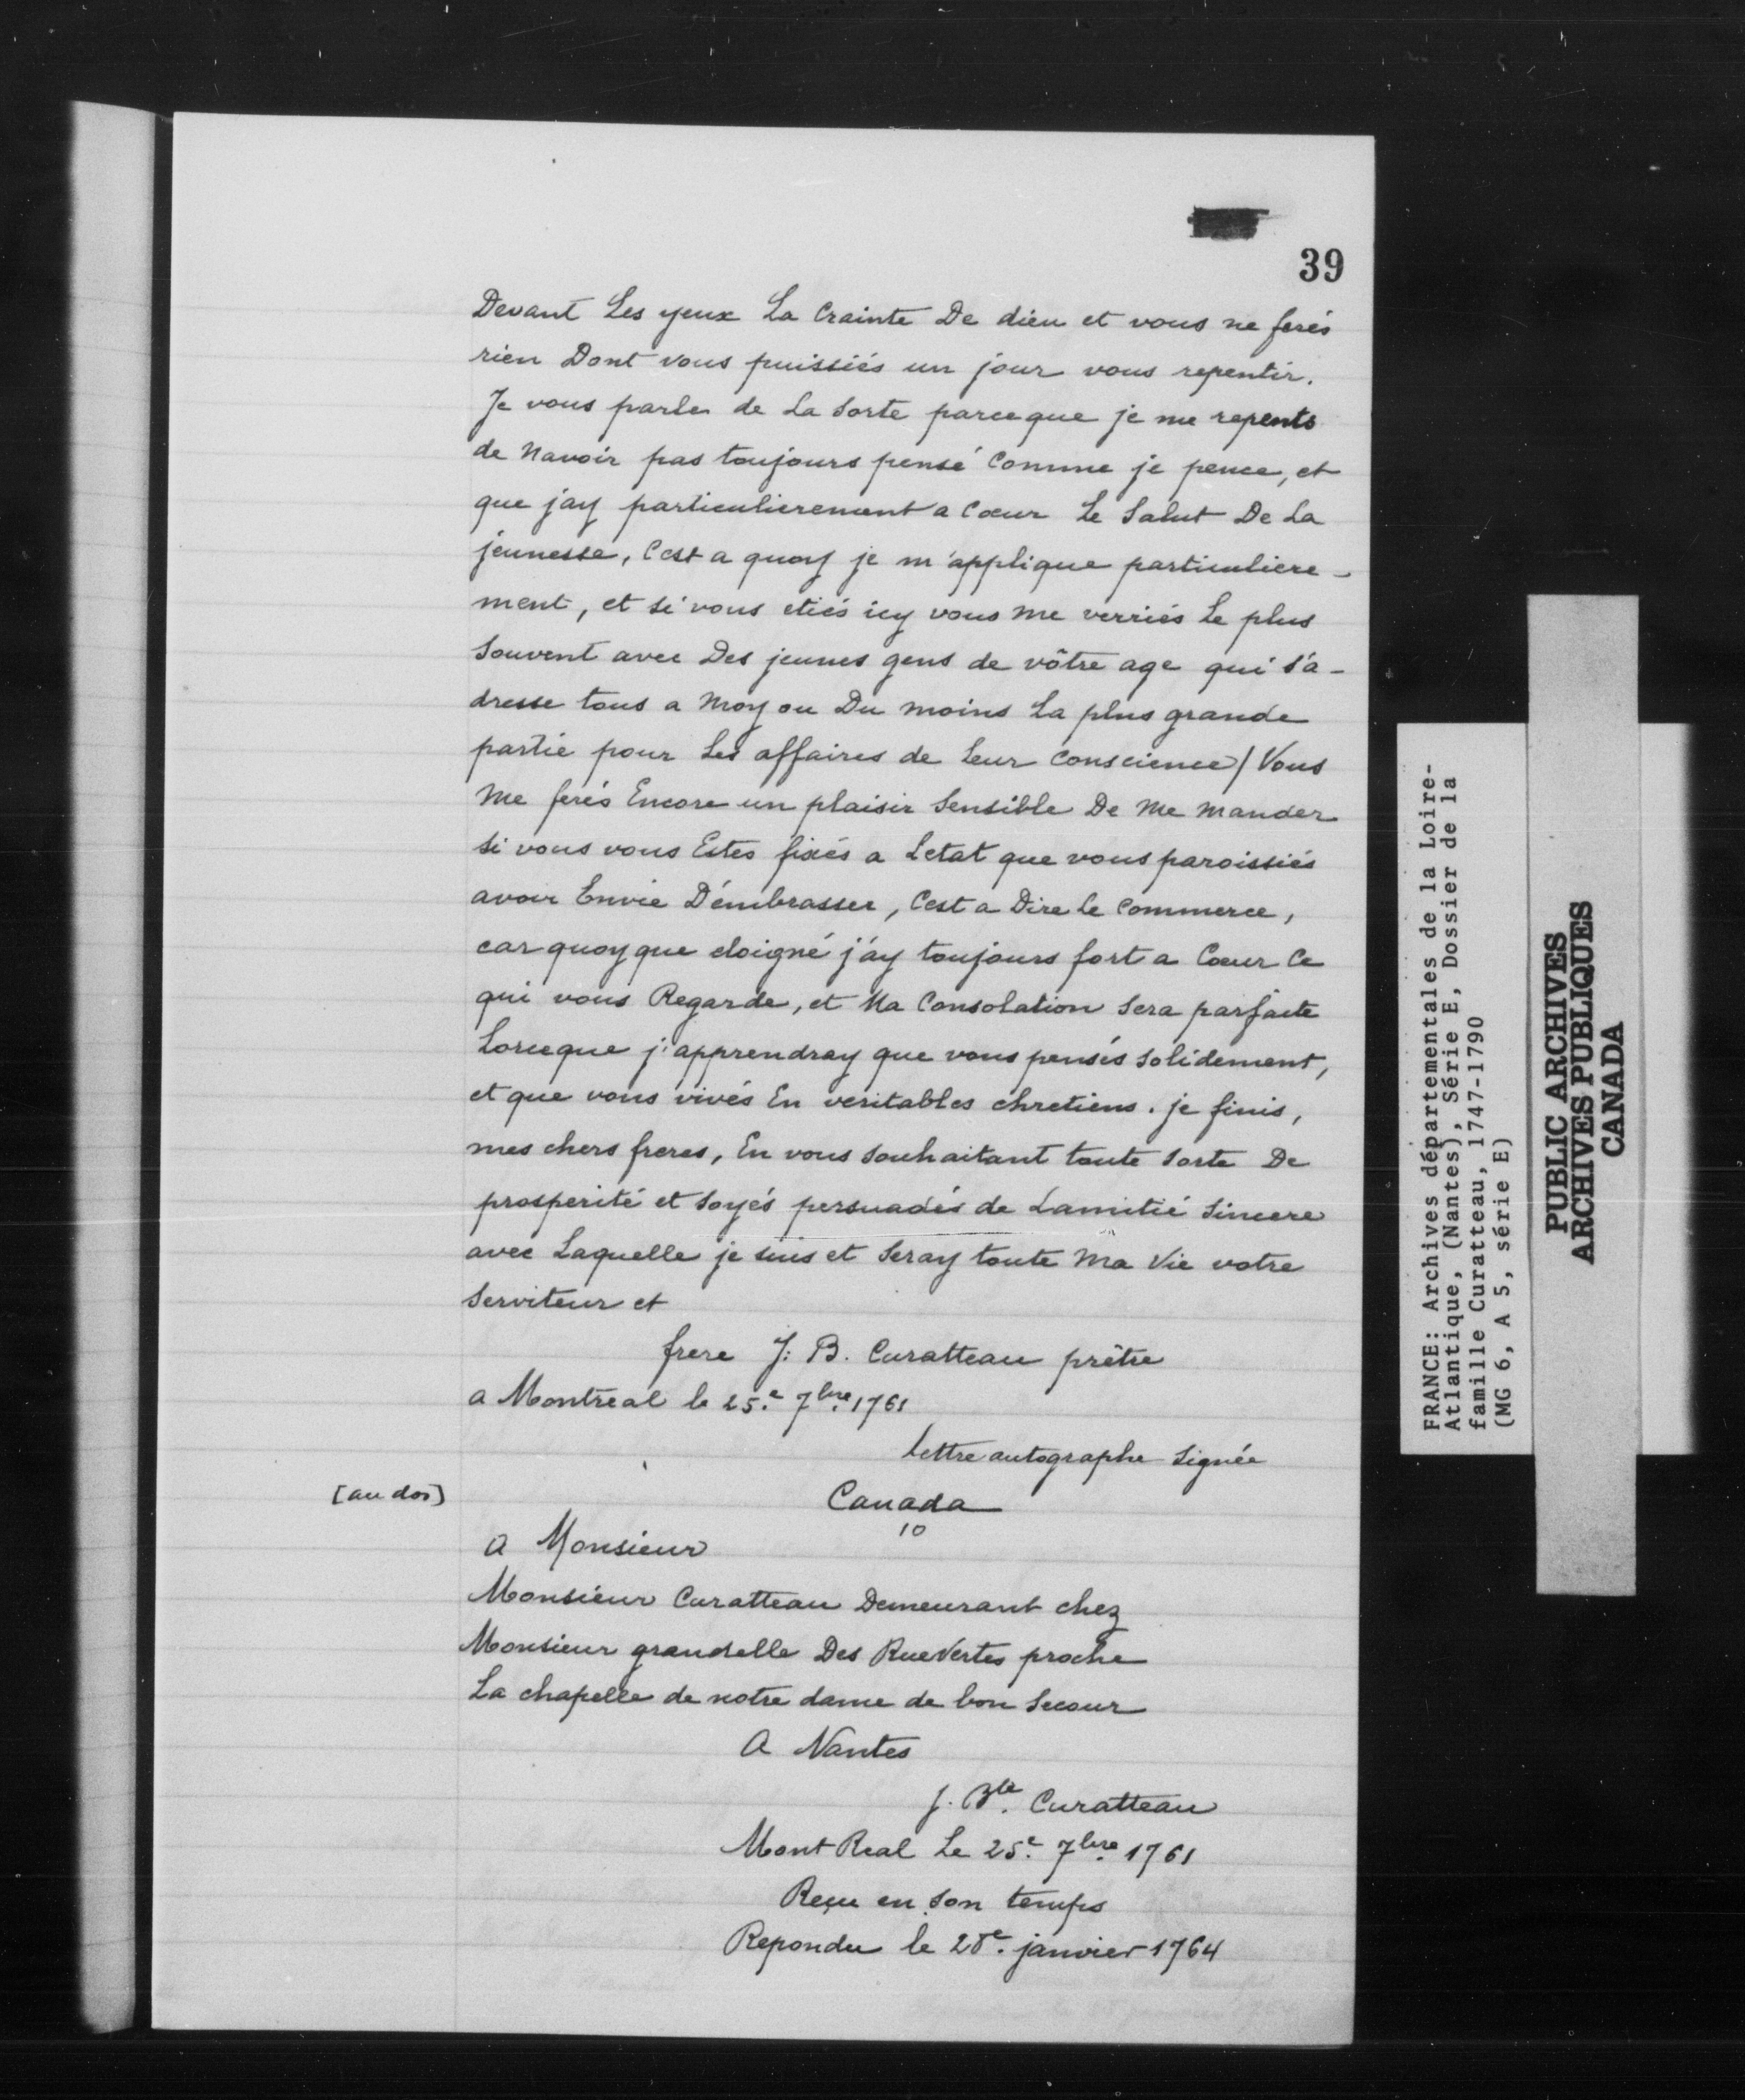 39
Devant Les yeux La Crainte De dieu et vous ne ferés
rien Dont vous puissiés un jour vous repentir.
Je vous parle de La Sorte parceque je me repents
de Navoir pas toujours pensé Comme je pence, et
que jay particulierement a Cœur Le Salut De La
jeunesse, C'est a quoy je m'applique particuliere-
ment, et si vous etiés icy vous me verriés Le plus
Souvent avec Des jeunes gens de vôtre age qui s'a-
dresse tous a Moy ou Du moins La plus grande
partie pour Les affaires de Leur Conscience/ Vous
Me ferés Encore un plaisir Sensible De Me Mander
si vous vous Estes fixés a Letat que vous paroissiés
avoir Envie D'émbrasser, C'est a Dire Le Commerce,
car quoyque eloigné j'ay toujours fort a Cœur Ce
qui vous Regarde, et Ma Consolation Sera parfaite
Lorceque j'apprendray que vous pensés Solidement,
et que vous vivés En veritables chretiens. je finis,
mes chers freres, En vous Souhaitant toute Sorte De
prosperité et Soyés persuadés de Lamitié Sincere
avec Laquelle je suis et Seray toute Ma Vie votre
Serviteur et
frere J: B. Curatteau prêtre
a Montréal le 25.e 7bre. 1761
Lettre autographe signée
[au dos]
Canada
10
A Monsieur
Monsieur Curatteau Demeurant chez
Monsieur grandelle Des RueVertes proche
La chapelle de notre dame de bon Secour
A Nantes
J. Bte. Curatteau
Mont Real Le 25.e 7bre. 1761
Reçu en Son temps
Repondu le 28e. janvier 1764
FRANCE: Archives départementales de la Loire-
Atlantique, (Nantes), Série E, Dossier de la
famille Curatteau, 1747-1790
(MG 6, A 5, série E)
PUBLIC ARCHIVES
ARCHIVES PUBLIQUES
CANADA